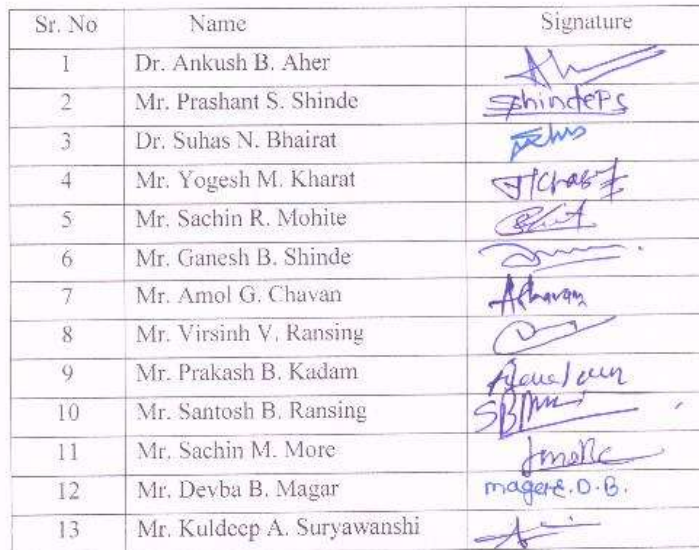 Sr. No Name Signature
1 Dr. Ankush B. Aher
2 Mr. Prashant S. Shinde ShindePS
3 Dr. Suhas N. Bhairat
4 Mr. Yogesh M. Kharat
5 Mr. Sachin R. Mohite
6 Mr. Ganesh B. Shinde
7 Mr. Amol G. Chavan AChavan
8 Mr. Virsinh V. Ransing
9 Mr. Prakash B. Kadam
10 Mr. Santosh B. Ransing
11 Mr. Sachin M. More
12 Mr. Devba B. Magar magare.D.B.
13 Mr. Kuldeep A. Suryawanshi